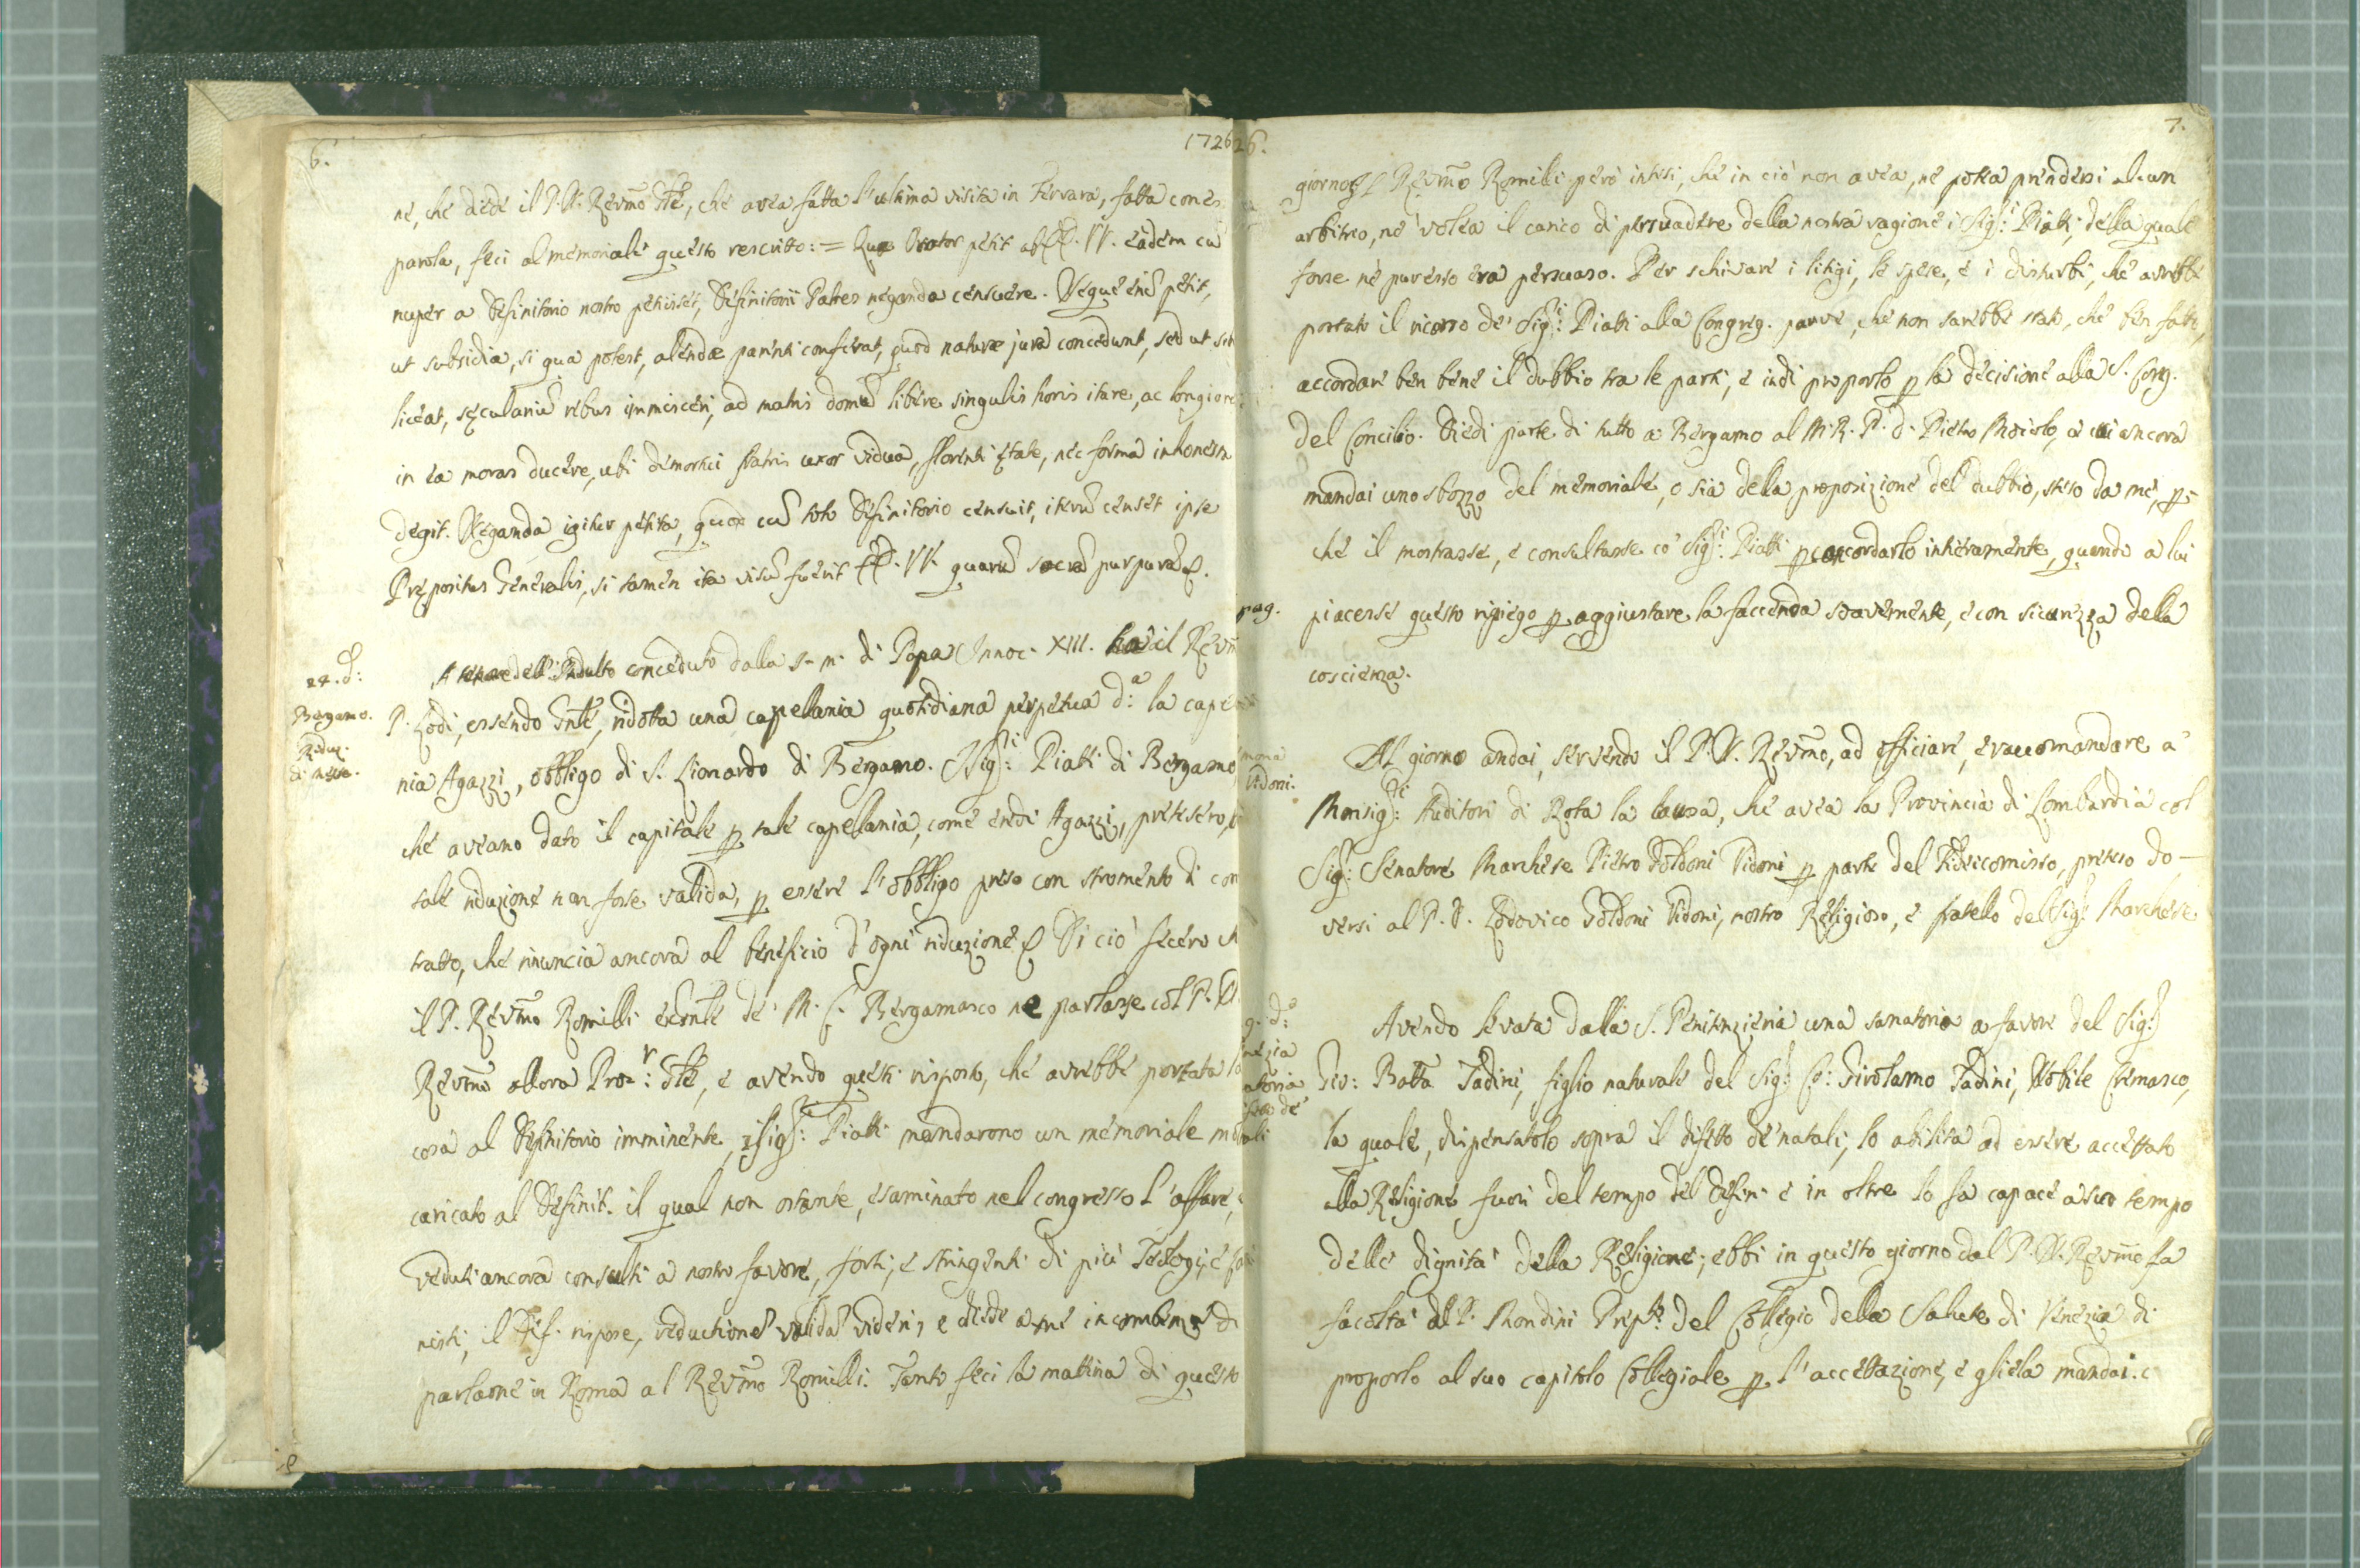 6.
1726
né, ché dede il P. N. Revmo Gle, ché avea fatta l'ultima visita in Ferrara, fatta con es
parola, feci al memoriale questo rescritto: = Quæ Orator petit ab EE. VV. eadem cu
nuper a Definitorio nostro petiisset, Definitorii Patres neganda censuere. Neque enim petit,
ut subsidia, si qua potest, alendæ parenti conferat, quod naturæ jura concedunt, sed ut sibi
liceat, sęcularium rebus immisceri, ad matris domum libere singulis horis itare, ac longiores
in ea moras ducere, ubi demortui fratris uxor vidua, florenti ętate, nec forma inhonesta
degit. Neganda igitur petita, quod cum toto Definitorio censuit, iterum censet ipse
Prępositus Generalis, si tamen ita visum fuerit EE. VV. quarum sacram purpuram &.
24. d:
Bergamo.
Reduz.
di messe.
A tenore dell'Indulto conceduto dalla s. m. di Papa Innoc. XIII. havea il Revmo
P. Lodi, essendo Gnle, ridotta una capellania quotidiana perpetua d:ª la capella
nia Agazzi, obbligo di S. Lionardo di Bergamo. I Sig:ri Piatti di Bergamo,
ché aveano dato il capitale p tale capellania, come eredi Agazzi, pretesero,
tale riduzione non fosse valida, p essere l'obbligo preso con stromento di con
tratto, ché rinuncia ancora al beneficio d'ogni riduzione & Di ciò fecero ch
il P. Revmo Romilli exGnle de' M. C. Bergamasco ne parlasse col P. N.
Revmo allora Proc:r Gle, e avendo questi risposto, ché avrebbe portata la
cosa al Definitorio imminente, i Sig:ri Piatti mandarono un memoriale
caricato al Definit. il qual non ostante, esaminato nel congresso l'affare,
veduti ancora consulti a nostro favore, forti, e stringenti di più Teologi, e
nisti, il Def. rispose, reductionem validam videri, e diede a me incombenza di
parlarne in Roma al Revmo Romilli. Tanto feci la mattina di questo
26.
7.
giorno. Il Revmo Romilli però intesi, ché in ciò non avea, ne potea prendersi alcun
arbitrio, né volea il carico di persuadere della nostra ragione i Sig:ri Piatti, della quale
forse né pur esso era persuaso. Per schivare i litigi, le spese, e i disturbi, ché avrebbe
portato il ricorso de' Sig:ri Piatti alla Congreg. parve, ché non sarebbe stato, ché ben fatto,
accordare ben bene il dubbio tra le parti, e indi proporlo p la decisione alla S. Cong.
del Concilio. Diedi parte di tutto a Bergamo al M. R. P. d. Pietro Moiolo, a cui ancora
mandai uno sbozzo del memoriale, o sia della proposizione del dubbio, steso da me, p-
ché il mostrasse, e consultasse co' Sig:ri Piatti p accordarlo intieramente, quando a lui
piacesse questo ripiego p aggiustare la faccenda soavemente, e con sicurezza della
coscienza.
pag.
mona
Vidoni.
Al giorno andai, servendo il P. N. Revmo, ad officiare, e raccomandare a'
Monsig:ri Auditori di Rota la causa, ché avea la Provincia di Lombardia col
Sig: Senatore Marchese Pietro Goldoni Vidoni p parte del Fideicomisso, preteso do-
versi al P. D. Lodovico Goldoni Vidoni, nostro Religioso, e fratello del Sig: Marchese
g. d:
nezia
atoria
etto de
tali
Avendo levata dalla S. Penitenzieria una sanatoria a favore del Sig:
Gio: Batta Tadini, figlio naturale del Sig: Co: Girolamo Tadini, Nobile Cremasco,
la quale, dispensatolo sopra il difetto de' natali, lo abilita ad essere accettato
alla Religione fuori del tempo del Defin. e in oltre lo fa capace a suo tempo
delle dignità della Religione; ebbi in questo giorno dal P. N. Revmo la
facoltà al P. Mondini Prep:to del Collegio della Salute di Venezia di
proporlo al suo capitolo Collegiale p l'accettazione, e gliela mandai.